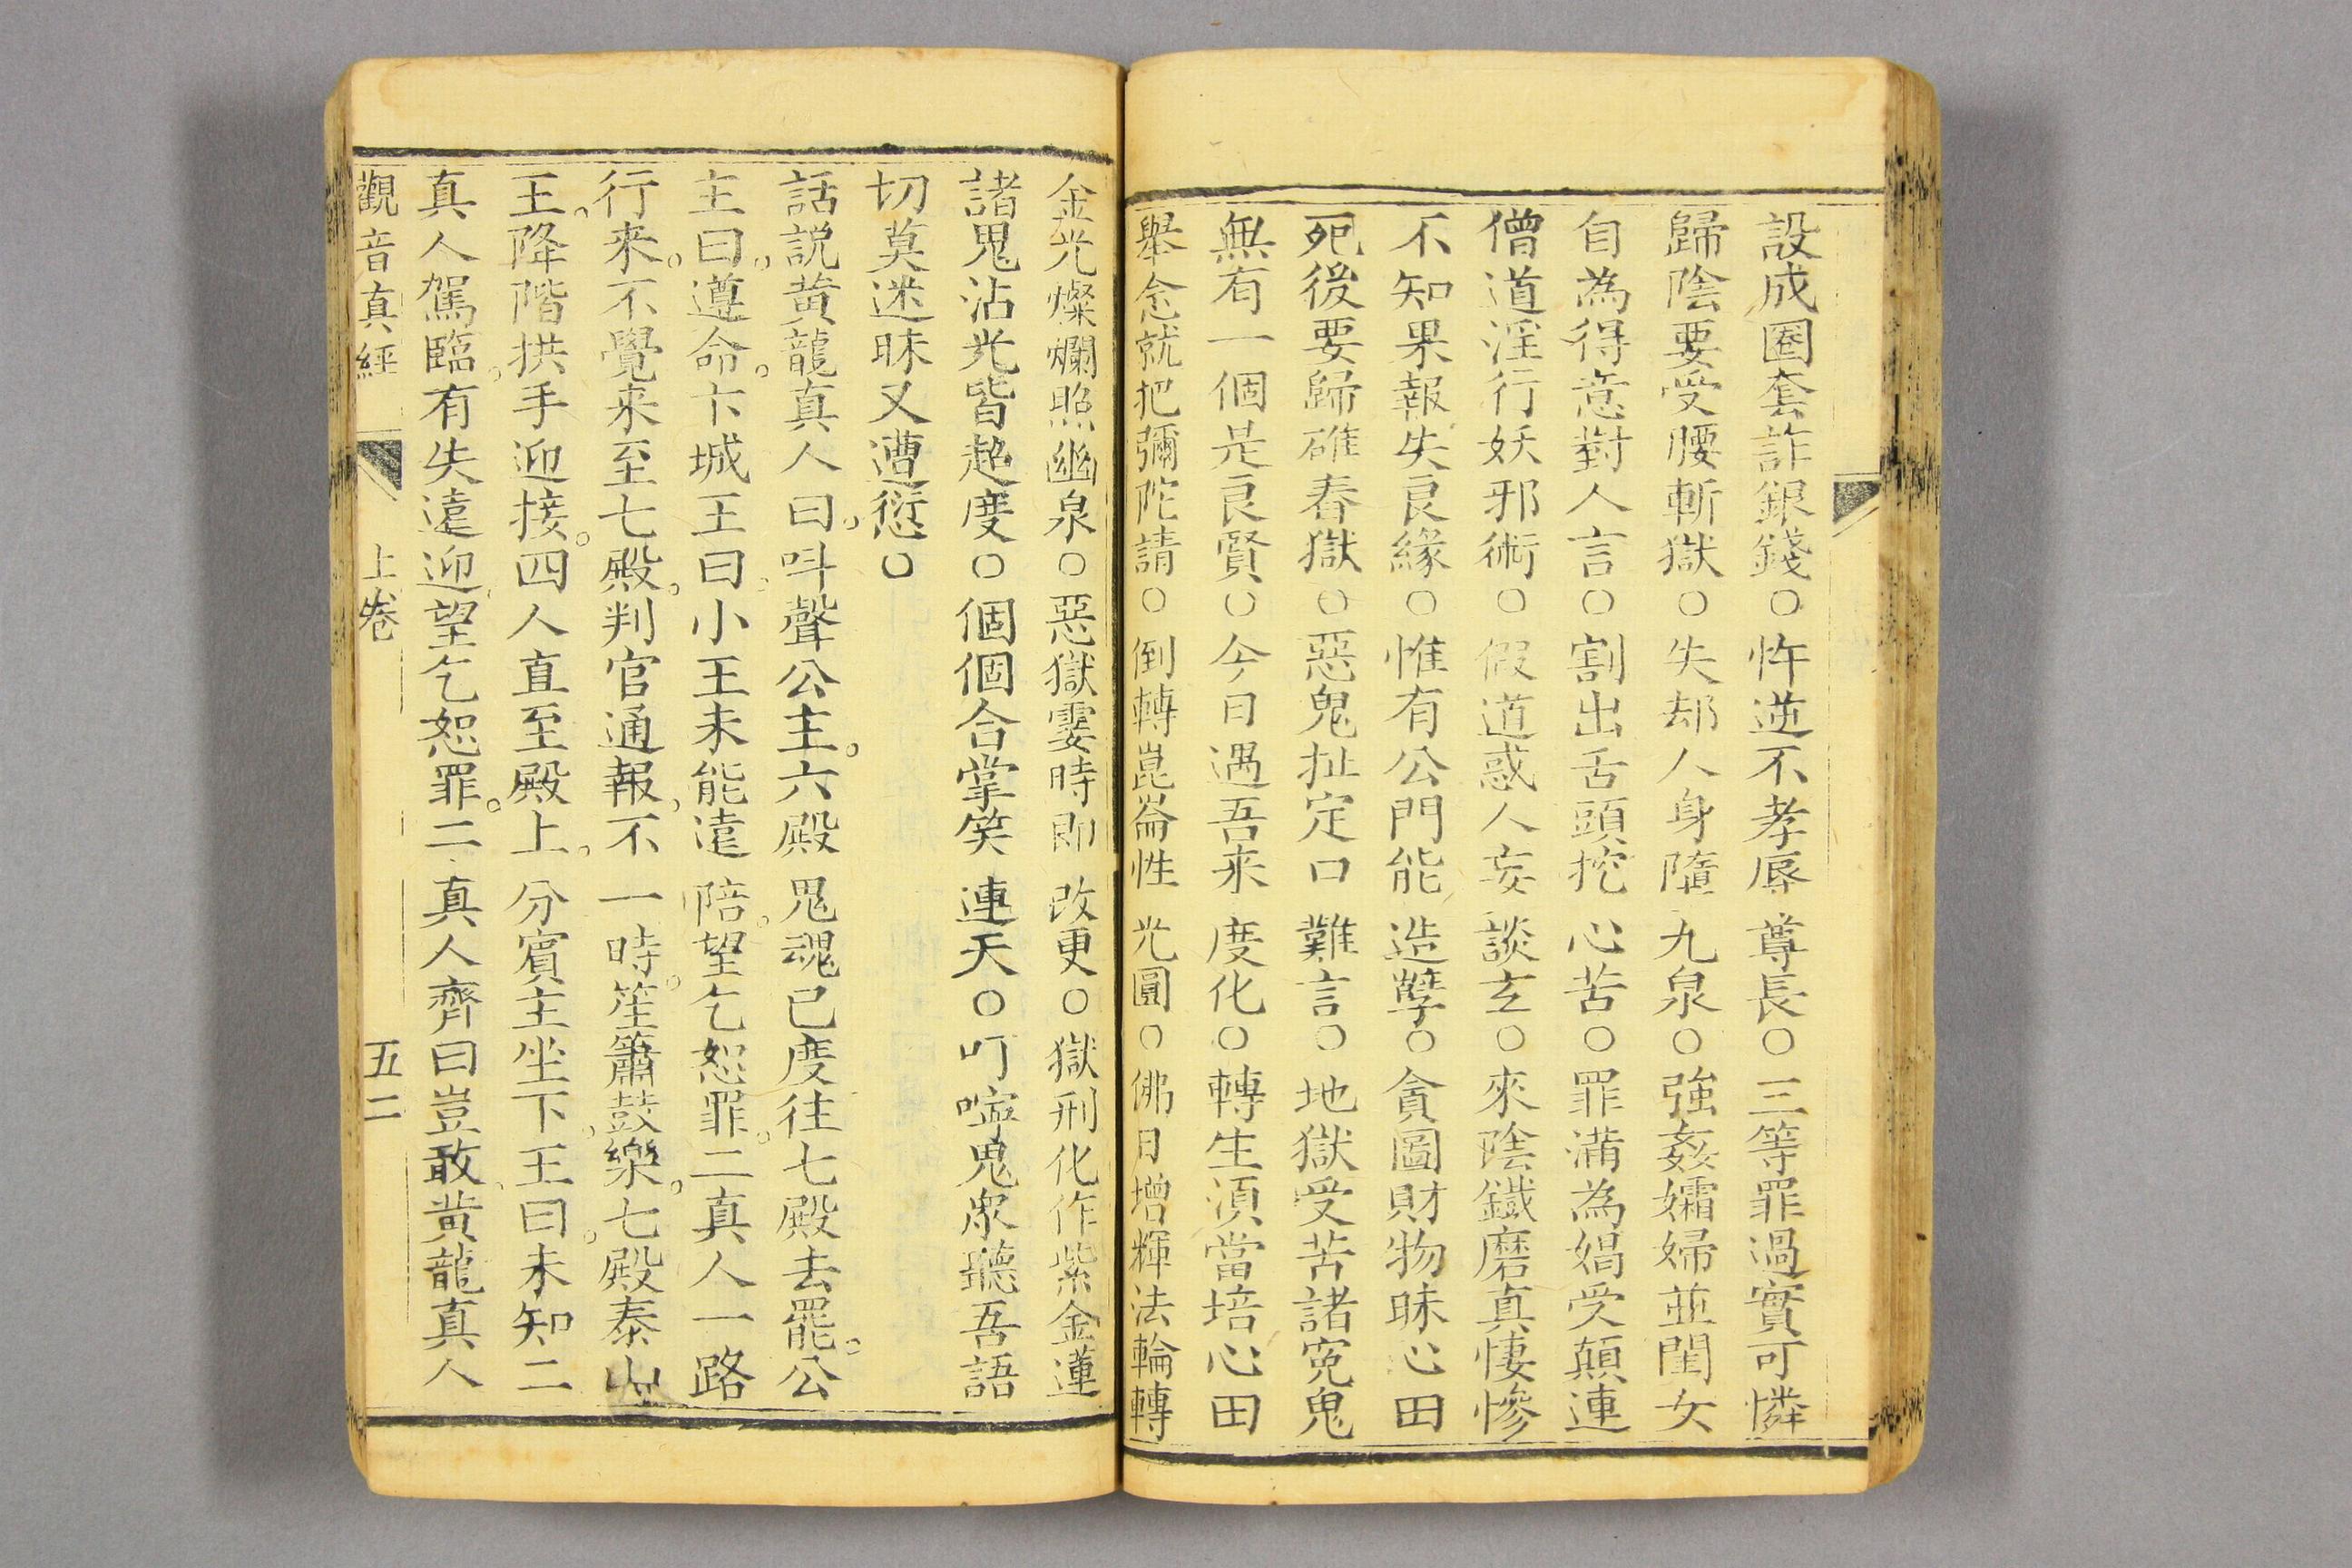 設成圈套詐銀錢○忤逆不孝辱尊長○三等罪過實可憐
歸陰要受腰斬獄○失却人身墮九泉○強姦孀婦並閨女
自為得意對人言○割出舌頭挖心苦○罪滿為娼受顛連
僧道淫行妖邪術○假道惑人妄談玄○來陰鐵磨真悽慘
不知果報失良緣○惟有公門能造孽○貪圖財物昧心田
死後要歸碓舂獄○惡鬼扯定口難言○地獄受苦諸冤鬼
無有一個是良賢○今日遇吾來度化○轉生須當培心田
舉念就把彌陀請○倒轉崑崙性光圓○佛日增輝法輪轉
金光燦爛照幽泉○惡獄霎時即改更○獄刑化作紫金蓮
諸鬼沾光皆超度○個個合掌笑連天○叮嚀鬼眾聽吾語
切莫迷昧又遭愆○
話說黄龍真人曰。呌聲公主。六殿鬼魂已度往七殿去罷。公
主曰。遵命。卞城王曰。小王未能遠陪。望乞恕罪。二真人一路
行来。不覺来至七殿。判官通報。不一時。笙簫鼓樂。七殿泰山
王。降階拱手迎接。四人直至殿上。分賓主坐下。王曰。未知二
真人駕臨。有失遠迎。望乞恕罪。二真人齊曰豈敢。黄龍真人
觀音真經 上卷 五二